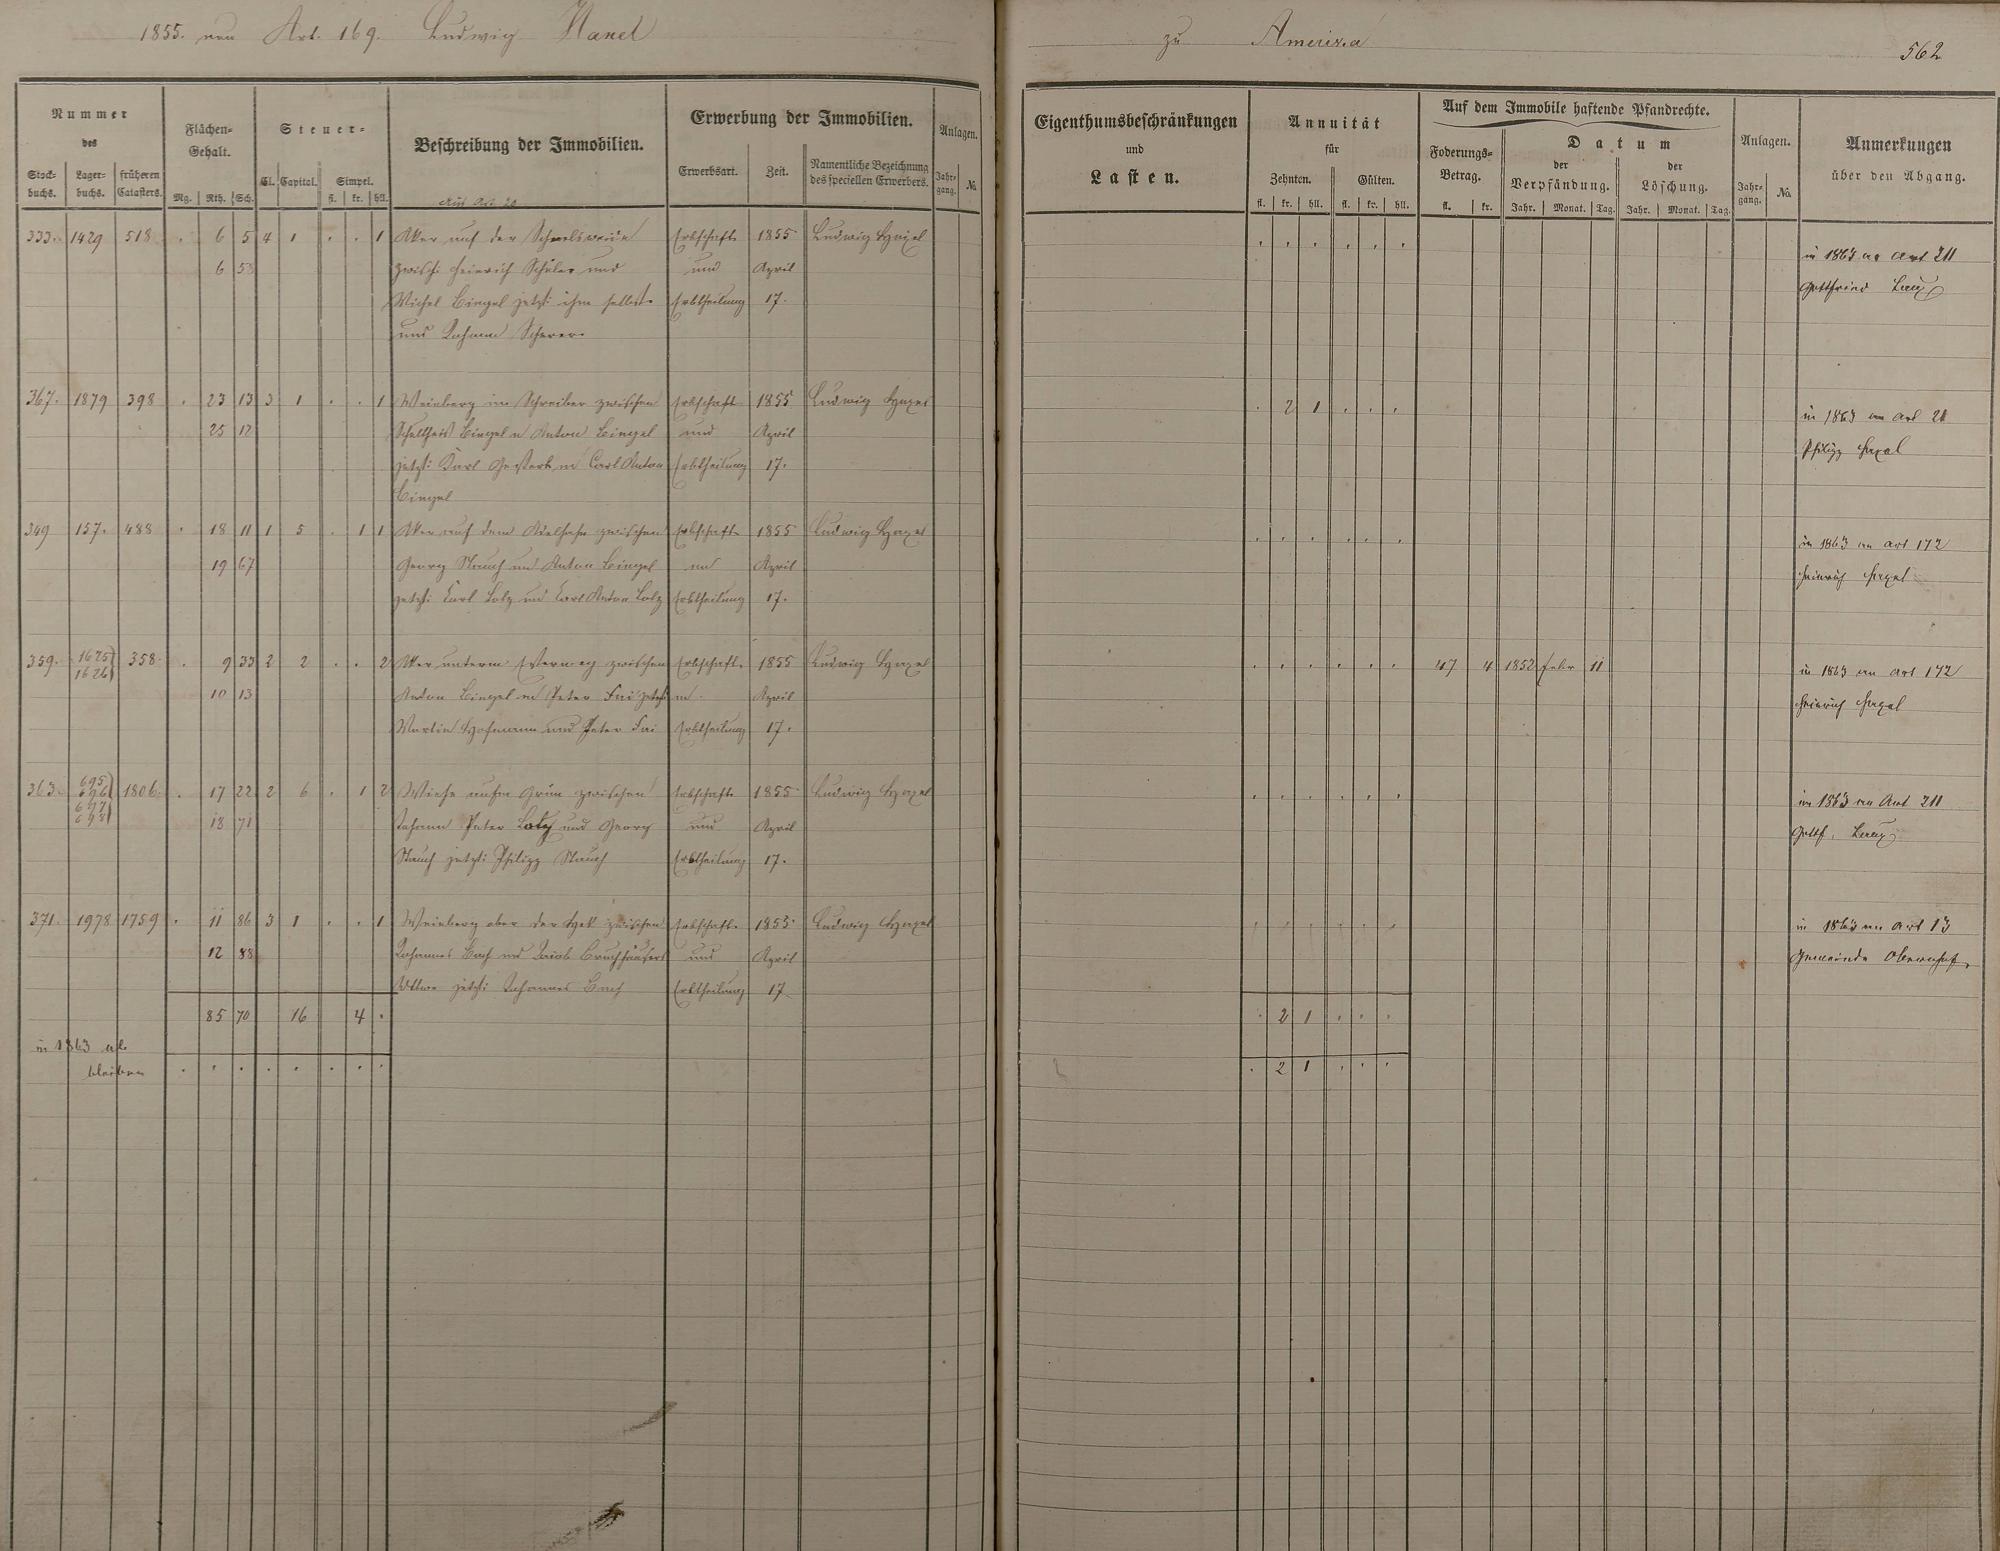 1855. neu Art. 169. Ludwig
zu Amerika
562
Nummer des
Stockbuchs. Lagerbuchs. früheren Catasters.
Flächen-Gehalt.
Mg. Rth. Sch.
Steuer-
Cl. Capital. Simpel.
fl. kr. hll.
Beschreibung der Immobilien.
Aus Art. 20
Erwerbung der Immobilien.
Erwerbsart. Zeit. Namentliche Bezeichnung des speciellen Erwerbers.
Anlagen.
Jahrgang. №
Eigenthumsbeschränkungen
und
Lasten.
Annuität
für
Zehnten. Gülten.
fl. kr. hll. fl. kr. hll.
Auf dem Immobile haftende Pfandrechte.
Foderungs-Betrag.
fl. kr.
Datum
der Verpfändung. der Löschung.
Jahr. Monat. Tag. Jahr. Monat. Tag.
Anlagen.
Jahrgang. №
Anmerkungen
über den Abgang.
333. 1429 518 . 6 5 4 1 . . 1 Aker auf der Erbschaft 1855 Ludwig
6 58 zwisch: Heinrich Schuler und und April
Michel Bingel jetzt: ihm selbst Erbtheilung 17.
und Johann Scherer
in 1863 an Art 211
Gottfried
367. 1879 398 . 23 13 3 1 . . 1 Weinberg im Schreiber zwischen Erbschaft 1855 Ludwig
25 12 Schultheis Bingel u Anton Bingel und April
jetzt: Karl Carl Anton Erbtheilung 17.
Bingel
. 2 1 . . .
in 1863 an Art
Philipp
349 157. 488 . 18 11 1 5 . 1 1 Aker auf dem zwischen Erbschaft 1855 Ludwig
19 67 Georg Stauch und Anton Bingel und April
jetzt: Karl Lotz und Carl Anton Lotz Erbtheilung 17.
in 1863 an Art 172
Heinrich
359. 1625 1626 358 . 9 33 2 2 . . 2 Aker unterm zwischen Erbschaft 1855 Ludwig
10 13 Anton Bingel u Peter jetzt u. April
Martin Hofmann und Peter Erbtheilung 17.
47 4 1852 Febr 11
in 1863 an Art 172
Heinrich
363. 695 696 697 698 1806. . 17 22 2 6 . 1 2 Wiese aufm Grün zwischen Erbschaft 1855 Ludwig
18 71 Johann Peter Lotz und Georg und April
Stauch jetzt: Philipp Stauch Erbtheilung 17.
in 1863 an Art 211
Gottf.
371. 1978 1759 . 11 86 3 1 . . 1 Weinberg ober der zwischen Erbschaft 1855 Ludwig
12 88 Johannes Bach und Jakob und April
Wittwe jetzt: Johannes Bach Erbtheilung 17
in 1863 an Art 13
Gemeinde Obernhof
85 70 16 4 .
. 2 1 . . .
in 1863 ab
bleiben
. 2 1 . . .